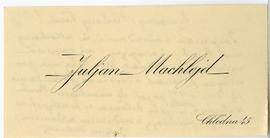 Juljan Machlejd
Chłodna 45